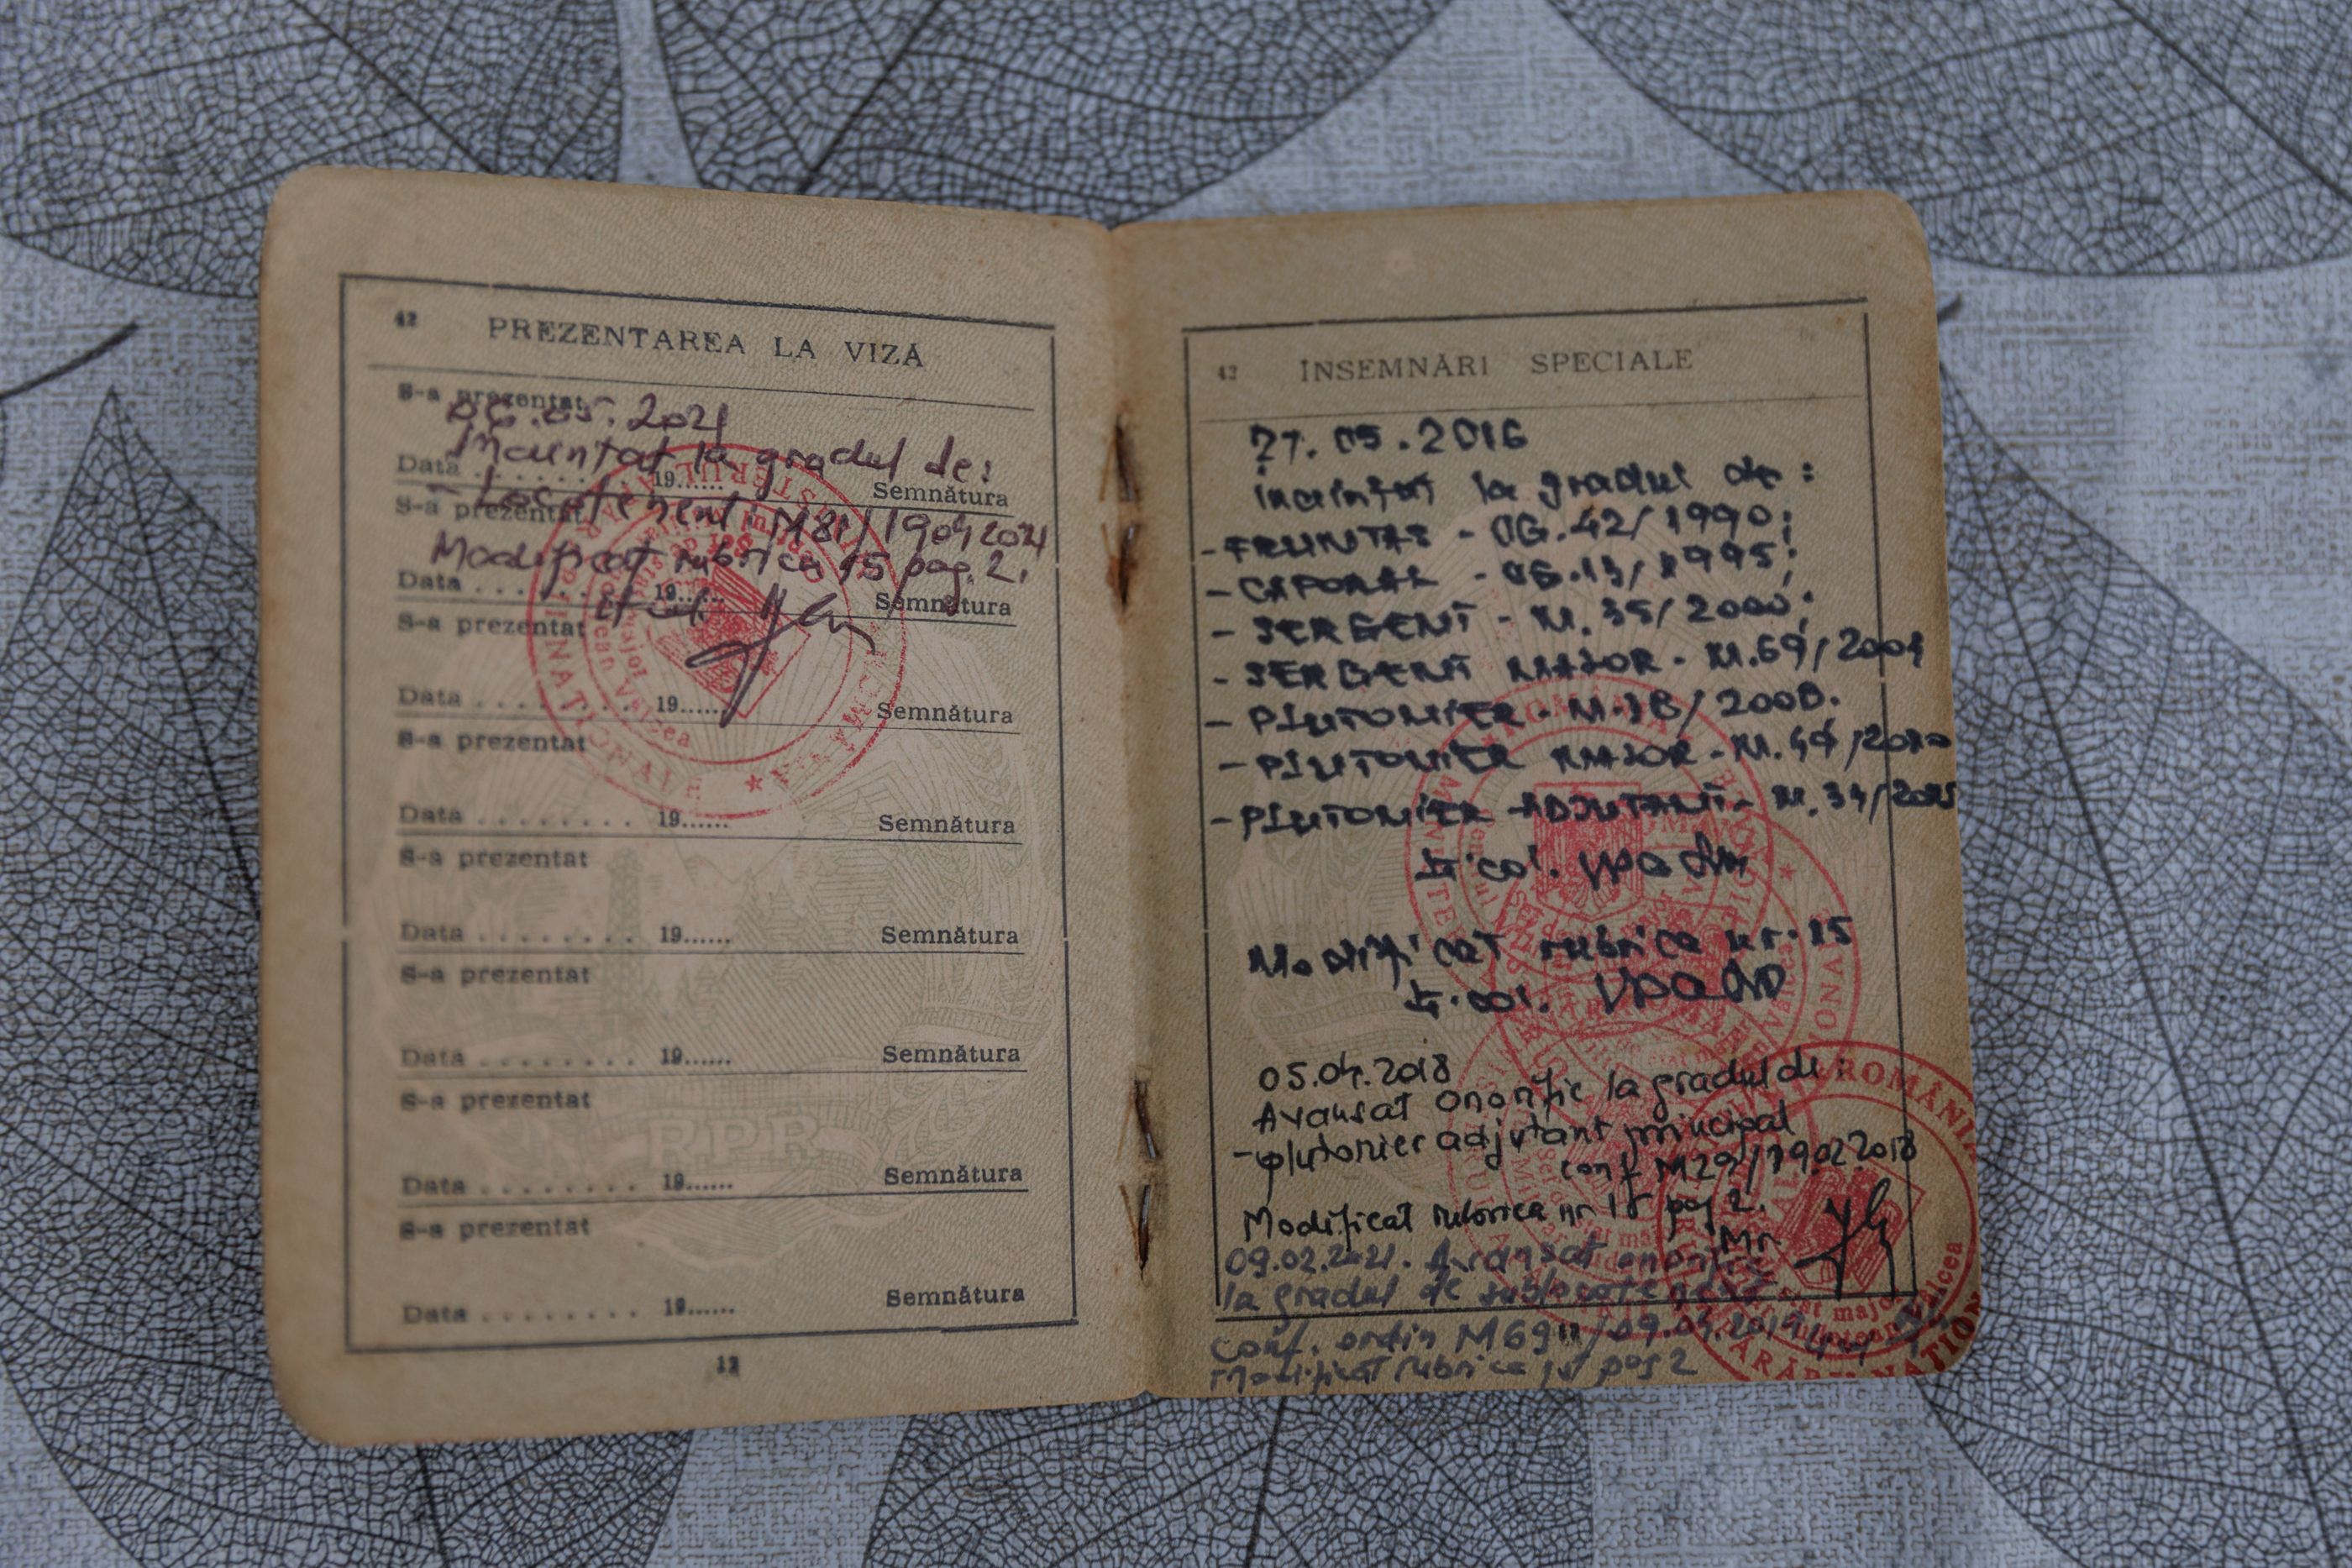 42 PREZENTAREA LA VIZĂ
S-a prezentat
06.05.2021
Inaintat la gradul de:
Data ........ 19...... Semnătura
S-a prezentat
- Locotenent, M81/19042021
Modificat rubrica 15 pag. 2.
Data ........ 19...... Semnătura
S-a prezentat
Data ........ 19...... Semnătura
S-a prezentat
Data ........ 19...... Semnătura
S-a prezentat
Data ........ 19...... Semnătura
S-a prezentat
Data ........ 19...... Semnătura
S-a prezentat
Data ........ 19...... Semnătura
S-a prezentat
Data ........ 19...... Semnătura
RPR
42 INSEMNĂRI SPECIALE
27.05.2016
inaintat la gradul de:
- FRUNTAS - OG.42/1990;
- CAPORAL - OG.13/1995;
- SERGENT - M.35/2000;
- SERGENT MAJOR - M.69/2004
- PLUTONIER - M.18/2008.
- PLUTONIER MAJOR - M. /2010
- PLUTONIER ADJUTANT - M.34/2015
lt. col.
Modificat rubrica nr. 15
lt. col.
05.04.2018
Avansat onorific la gradul de:
- plutonier adjutant principal
conf M29/19.02.2018
Modificat rubrica nr 15 pag 2.
Mr.
09.02.2021. Avansat onorific
la gradul de sublocotenent
conf. ordin M69 /09.04.2019
Modificat rubrica 15 pag 2
ROMÂNIA
Vâlcea